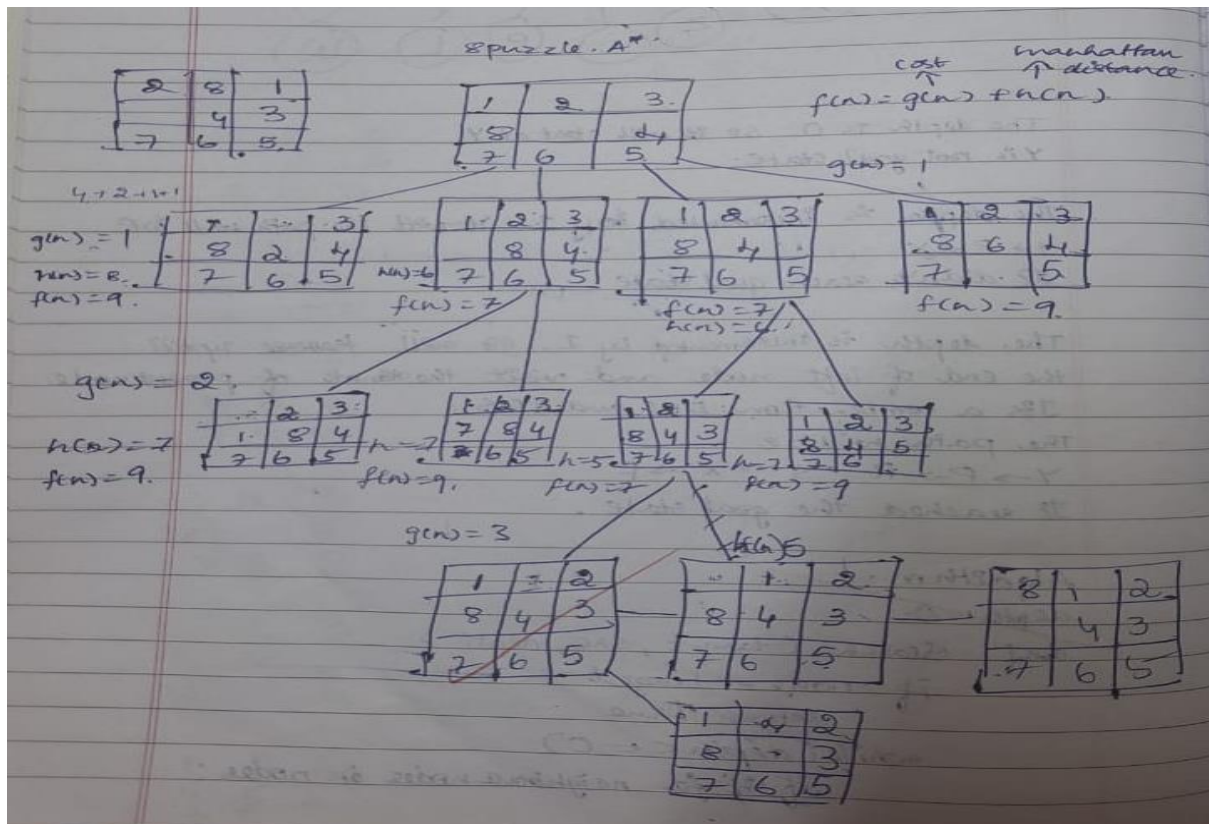 8 puzzle. A*.
cost
manhattan distance.
f(n) = g(n) + h(n).
2 8 1
4 3
7 6 5
1 2 3
8 4
7 6 5
g(n) = 1
4+2+1+1
g(n) = 1
h(n) = 8.
f(n) = 9.
3
8 2 4
7 6 5
h(n)=6
1 2 3
8 4
7 6 5
f(n) = 7
1 2 3
8 4
7 6 5
f(n) = 7
1 2 3
8 6 4
7 5
f(n) = 9.
g(n) = 2.
h(n) = 7
f(n) = 9.
2 3
1 8 4
7 6 5
h=7
1 2 3
7 8 4
6 5
f(n)=9.
h=5
1 2
8 4 3
7 6 5
f(n)=7
h=7
1 2 3
8 4 5
7 6
f(n)=9
g(n) = 3
1 2
8 4 3
7 6 5
1 2
8 4 3
7 6 5
8 1 2
4 3
7 6 5
1 4 2
8 3
7 6 5